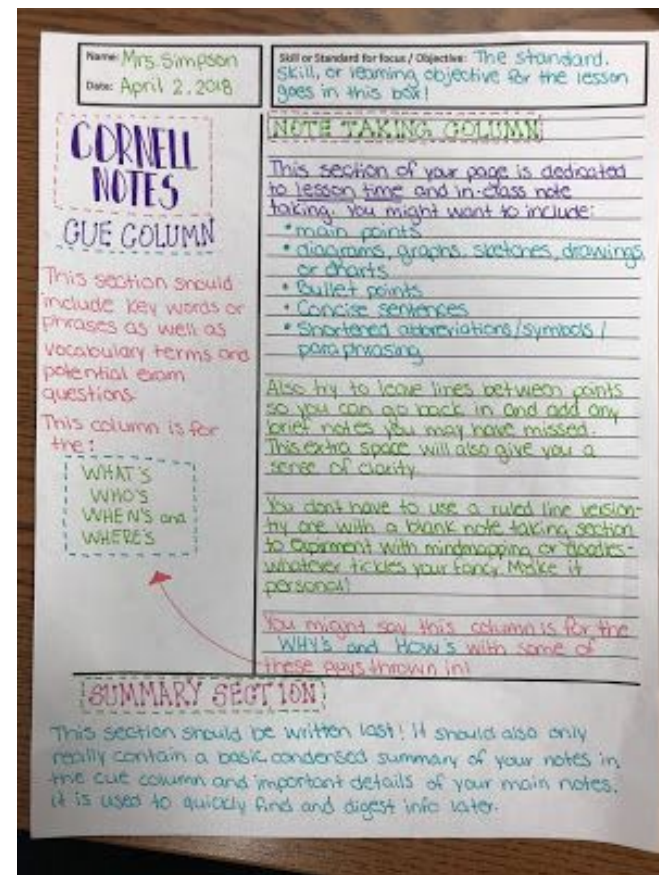 Name: Mrs. Simpson
Date: April 2, 2018
Skill or Standard for focus / Objective: The standard,
skill, or learning objective for the lesson
goes in this box!
CORNELL
NOTES
CUE COLUMN
This section should
include key words or
phrases as well as
vocabulary terms and
potential exam
questions.
This column is for
the:
WHAT'S
WHO'S
WHEN'S and
WHERE'S
NOTE TAKING COLUMN
This section of your page is dedicated
to lesson time and in-class note
taking. You might want to include:
• main points
• diagrams, graphs, sketches, drawings
or charts
• Bullet points
• Concise sentences
• Shortened abbreviations/symbols/
paraphrasing
Also try to leave lines between points
so you can go back in and add any
brief notes you may have missed.
This extra space will also give you a
sense of clarity.
You dont have to use a ruled line version-
try one with a blank note taking section
to expirment with mindmapping or doodles-
whatever tickles your fancy. Make it
personal!
You might say this column is for the
WHY'S and HOW'S with some of
these guys thrown in!
SUMMARY SECTION
This section should be written last! It should also only
really contain a basic condensed summary of your notes in
the cue column and important details of your main notes.
it is used to quickly find and digest info later.